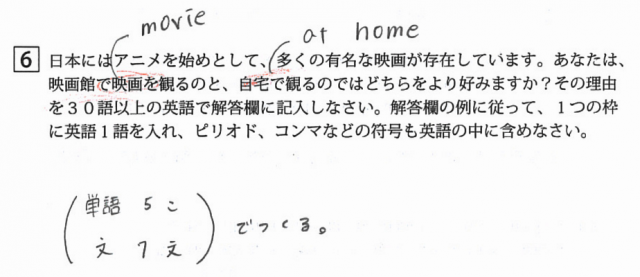 movie
at home
6 日本にはアニメを始めとして、多くの有名な映画が存在しています。あなたは、
映画館で映画を観るのと、自宅で観るのではどちらをより好みますか？その理由
を３０語以上の英語で解答欄に記入しなさい。解答欄の例に従って、１つの枠
に英語１語を入れ、ピリオド、コンマなどの符号も英語の中に含めなさい。
単語 5こ
文 7文
でつくる。